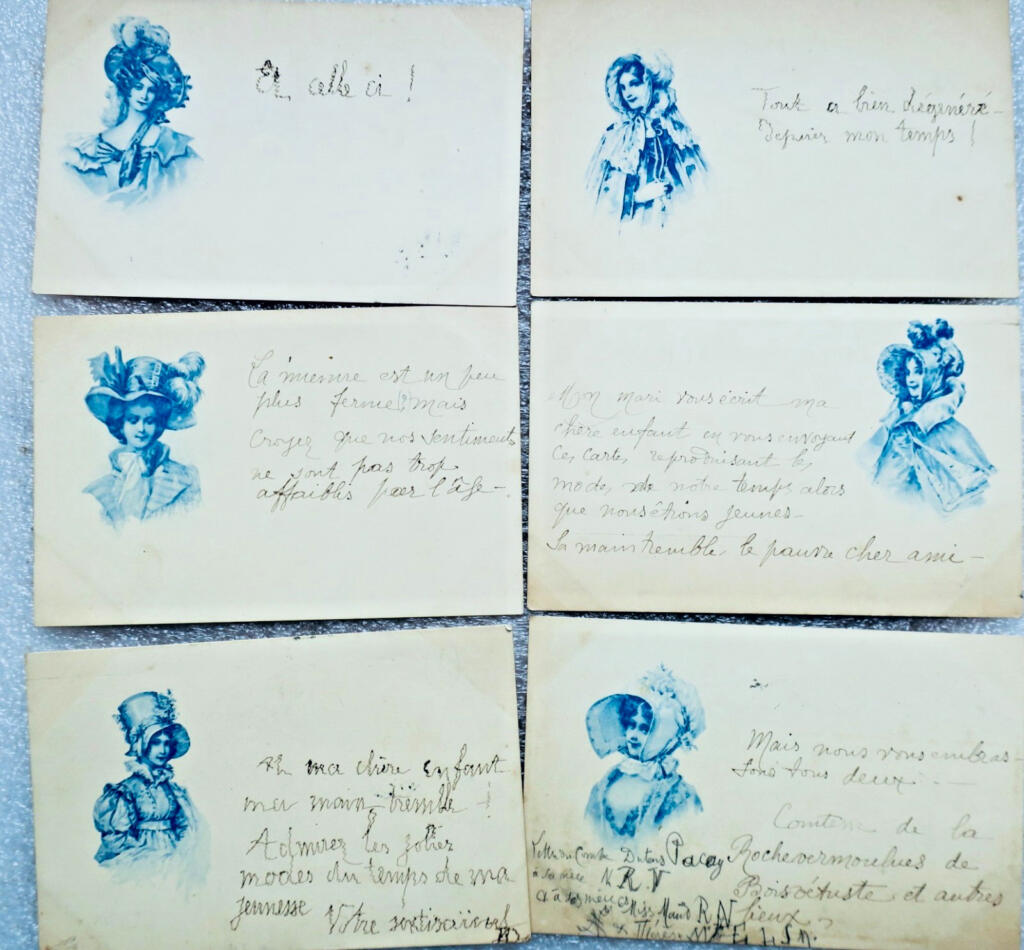 Et celle ci !
Tout a bien dégénéré -
depuis mon temps !
La mienne est un peu
plus ferme, mais
croyez que nos sentiments
ne sont pas trop
affaiblis par l'âge -
Mon mari vous écrit ma
chère enfant en vous envoyant
ces cartes reproduisant les
modes de notre temps alors
que nous étions jeunes -
Sa main tremble, le pauvre cher ami -
Ah ma chère enfant
ma main tremble !
Admirez les jolies
modes du temps de ma
jeunesse
Votre
Mais nous vous embras-
sons tous deux -
Comtesse de la
Rochevermoulues de
Boisvétuste et autres
lieux
du Comte Pacay
à sa N. R. V
et à ses
Miss Maud R N